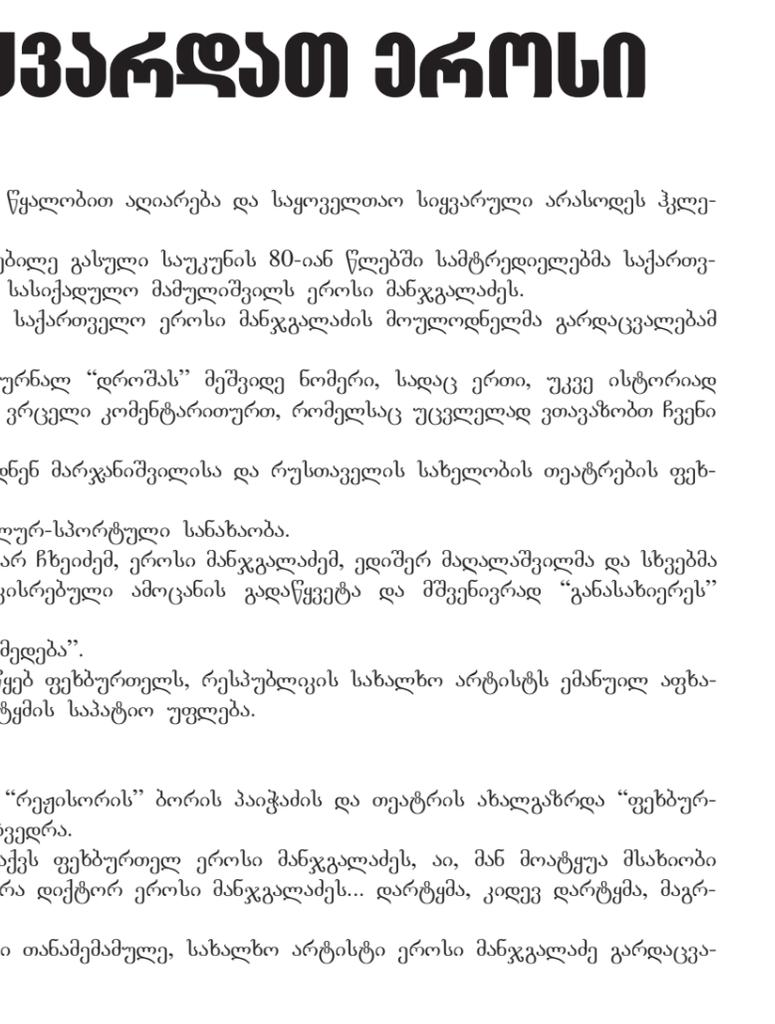 ყვარდათ ეროსი
წყალობით აღიარება და საყოველთაო სიყვარული არასოდეს ჰკლე-
ებილე გასული საუკუნის 80-იან წლებში სამტრედიელებმა საქართვ-
სასიქადულო მამულიშვილს ეროსი მანჯგალაძეს.
საქართველო ეროსი მანჯგალაძის მოულოდნელმა გარდაცვალებამ
ურნალ “დროშას” მეშვიდე ნომერი, სადაც ერთი, უკვე ისტორიად
ვრცელი კომენტარითურთ, რომელსაც უცვლელად ვთავაზობთ ჩვენი
დნენ მარჯანიშვილისა და რუსთაველის სახელობის თეატრების ფეხ-
ლურ-სპორტული სანახაობა.
არ ჩხეიძემ, ეროსი მანჯგალაძემ, ედიშერ მაღალაშვილმა და სხვებმა
კისრებული ამოცანის გადაწყვეტა და მშვენივრად “განასახიერეს”
მედება”.
წყებ ფეხბურთელს, რესპუბლიკის სახალხო არტისტს ემანუილ აფხა-
ტყმის საპატიო უფლება.
“რეჟისორის” ბორის პაიჭაძის და თეატრის ახალგაზრდა “ფეხბურ-
ხვედრა.
აქვს ფეხბურთელ ეროსი მანჯგალაძეს, აი, მან მოატყუა მსახიობი
რა დიქტორ ეროსი მანჯგალაძეს... დარტყმა, კიდევ დარტყმა, მაგრ-
ი თანამემამულე, სახალხო არტისტი ეროსი მანჯგალაძე გარდაცვა-